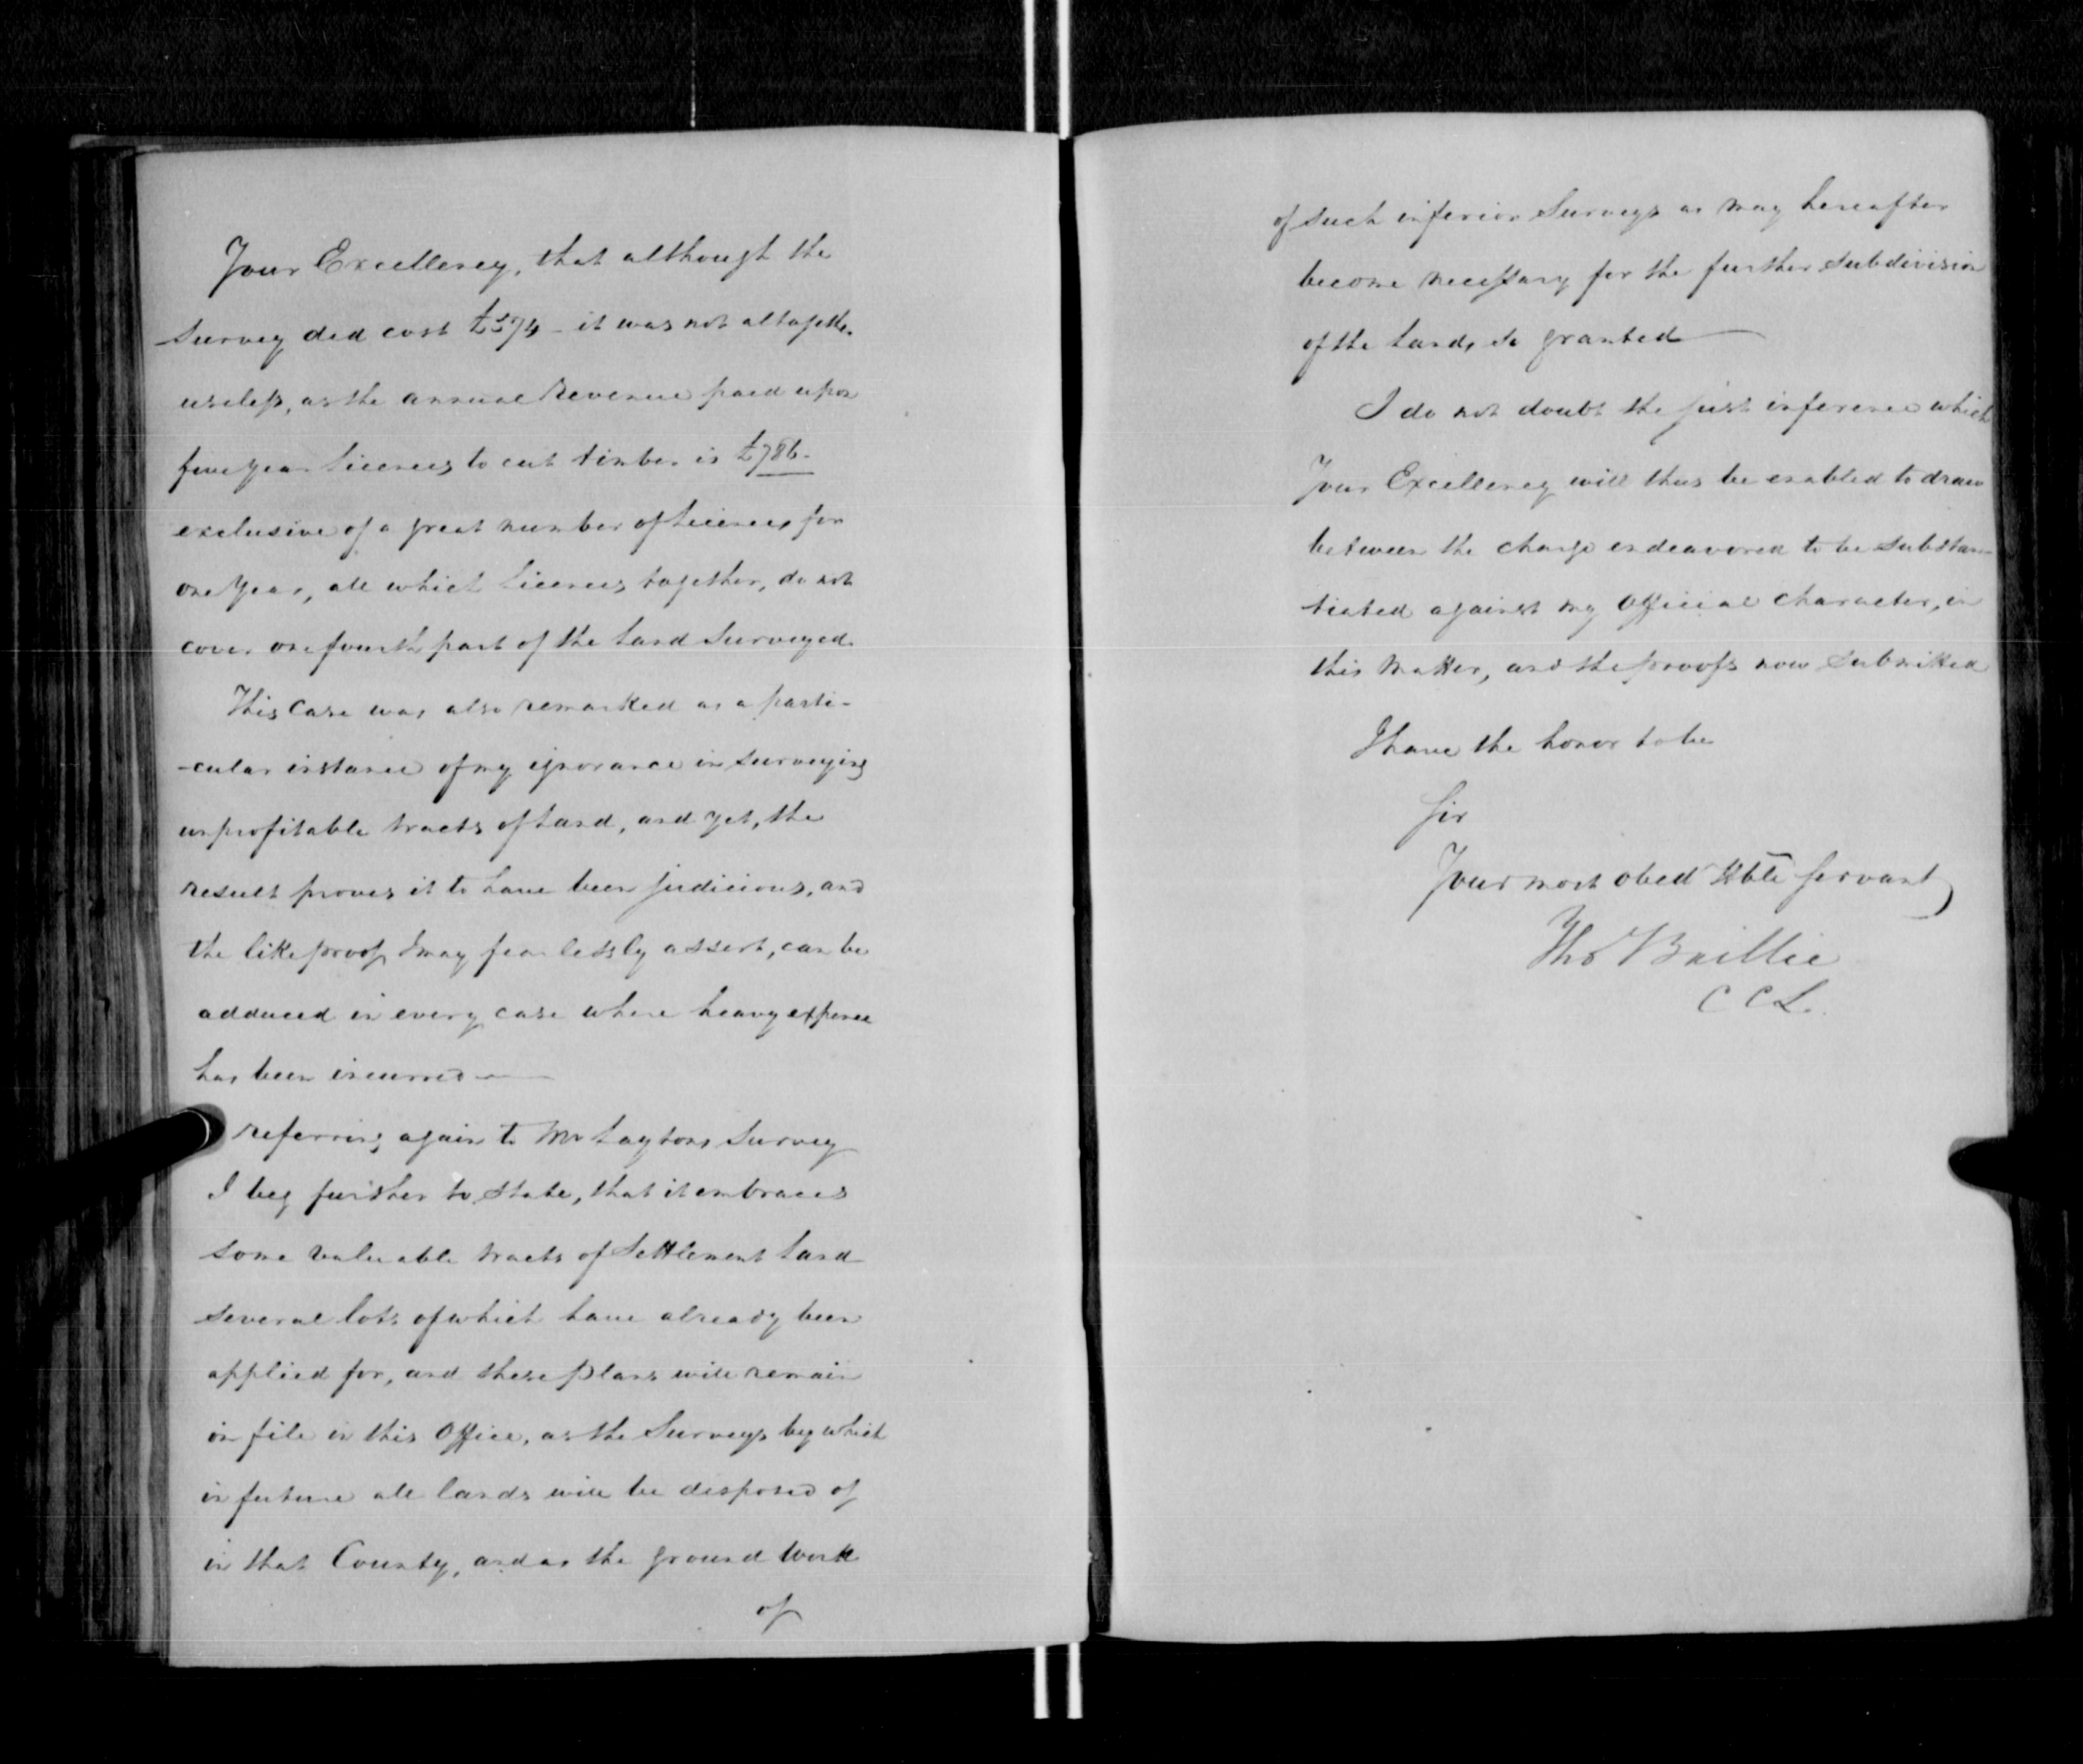 Your Excellency, that although the
Survey did cost £574 - it was not altogether
useless, as the annual Revenue paid upon
five year Licences to cut timber is £786.
exclusive of a great number of Licences for
one Year, all which Licences together, do not
cover one fourth part of the Land Surveyed.
This Case was also remarked as a parti-
-cular instance of my ignorance in surveying
unprofitable tracts of Land, and yet, the
result proves it to have been judicious, and
the like proof I may fearlessly assert, can be
adduced in every case where heavy expence
has been incurred
Referring again to Mr Laytons Survey
I beg further to state, that it embraces
some valuable tracts of Settlement Land
several lots of which have already been
applied for, and these plans will remain
on file in this Office, as the Surveys by which
in future all lands will be disposed of
in that County, and as the ground work
of
of such inferior Surveys as may hereafter
become necessary for the further subdivision
of the Lands so granted
I do not doubt the just inference which
Your Excellency will thus be enabled to draw
between the charge endeavored to be substan-
tiated against my Official character, in
this matter, and the proofs now submitted
I have the honor to be
Sir
Your most obed Hble Servant
Thos Baillie
C C L.